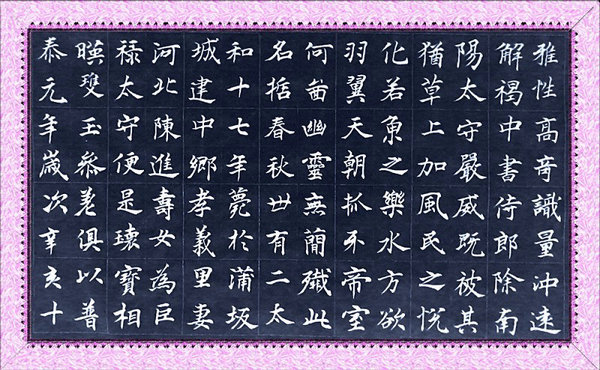 雅性高奇識量沖遠
解褐中書侍郎除南
陽太守嚴威既被其
猶草上加風民之悅
化若魚之樂水方欲
羽翼天朝抓牙帝室
何啚幽靈無簡殲此
名春秋丗有二太
和十七年薨於蒲坂
城建中鄉孝義里妻
河北陳進壽女為巨
祿太守便是瓌寶相
暎瓊玉參差俱以普
泰元年歲次辛亥十